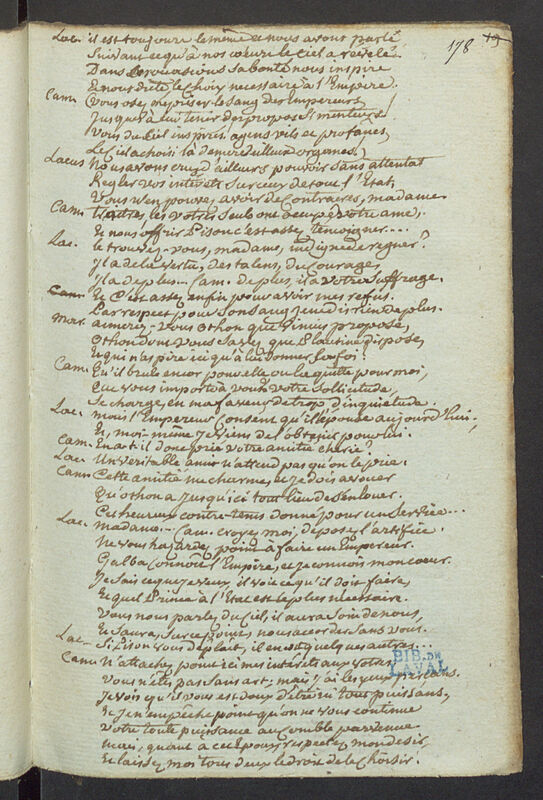 178 19
Lac. il est toujours le même et nous avons parlé
Suivant ce qu'à nos cœurs le Ciel a revelé
Dans occasions Sa bonté nous inspire
Et nous dicte le choix necessaire à l'Empire.
Cam. Vous osez mepriser le Sang des Empereurs
Jusqu'à lui tenir des propos Si menteurs!
Vous du Ciel inspirés, agens vils et profanes,
Le Ciel a choisi là de merveilleux organes.
Lacus Nous avons cru d'ailleurs pouvoir Sans attentat
Regler vos interêts Sur ceux de tout l'Etat,
Vous n'en pouvez avoir de contraires, madame.
Cam. traitres les vôtres Seuls ont occupé votre ame,
Et nous offrir Pison c'est assez temoigner...
Lac. le trouvez-vous, madame, indigne de regner?
Il a de la vertu, des talens, du courage,
Il a de plus.- Cam. de plus, il a votre Suffrage.
Cam. Et C'est assez enfin pour avoir mes refus.
Par respect pour Son Sang je ne dis rien de plus.
Mar. aimeriez-vous Othon que Vinius propose,
Othon dont vous Savez que Plautine dispose,
Et qui n'aspire ici qu'à lui donner Sa foi?
Cam. Qu'il brule encor pour elle ou la quitte pour moi,
Que vous importe à vous votre Sollicitude,
Se charge en ma faveur de trop d'inquietude.
Lac. mais l'Empereur Consent qu'il l'épouse aujourd'hui,
Et, moi-même je viens de l'obtenir pour lui.
Cam. En a-t-il donc prié votre amitié cherie?
Lac. Un veritable ami n'attend pas qu'on le prie.
Cam. Cette amitié me charme, et je dois avouer
Qu'Othon a jusqu'ici tout lieu de S'en louer.
Cet heureux contre-tems donné pour un Service...
Lac. Madame.- Cam. croyez moi, deposez l'artifice.
Ne vous hazardez point à faire un Empereur.
Galba connoit l'Empire, et je connois mon cœur.
Je Sais ce que je veux, il voit ce qu'il doit faire,
Et quel Prince à l'Etat est le plus necessaire.
Vous nous parlez du Ciel, il aura Soin de nous,
Et Saura, Sur ce point, nous accorder Sans vous.
Lac. Si Pison vous deplait, il en est quelques autres...
Cam. N'attachez point ici mes interêts aux vôtres,
Vous n'êtes pas Sans art; mais j'ai les yeux perçans.
Je vois qu'il vous est doux d'être ici tout puissans,
Et je n'empêche point qu'on ne vous continue
Votre toute puissance au comble parvenue
Mais, quant à cet Epoux, respectez mon desir,
Et laissez moi tous deux le droit de le choisir.
BIB. DE
LAVAL